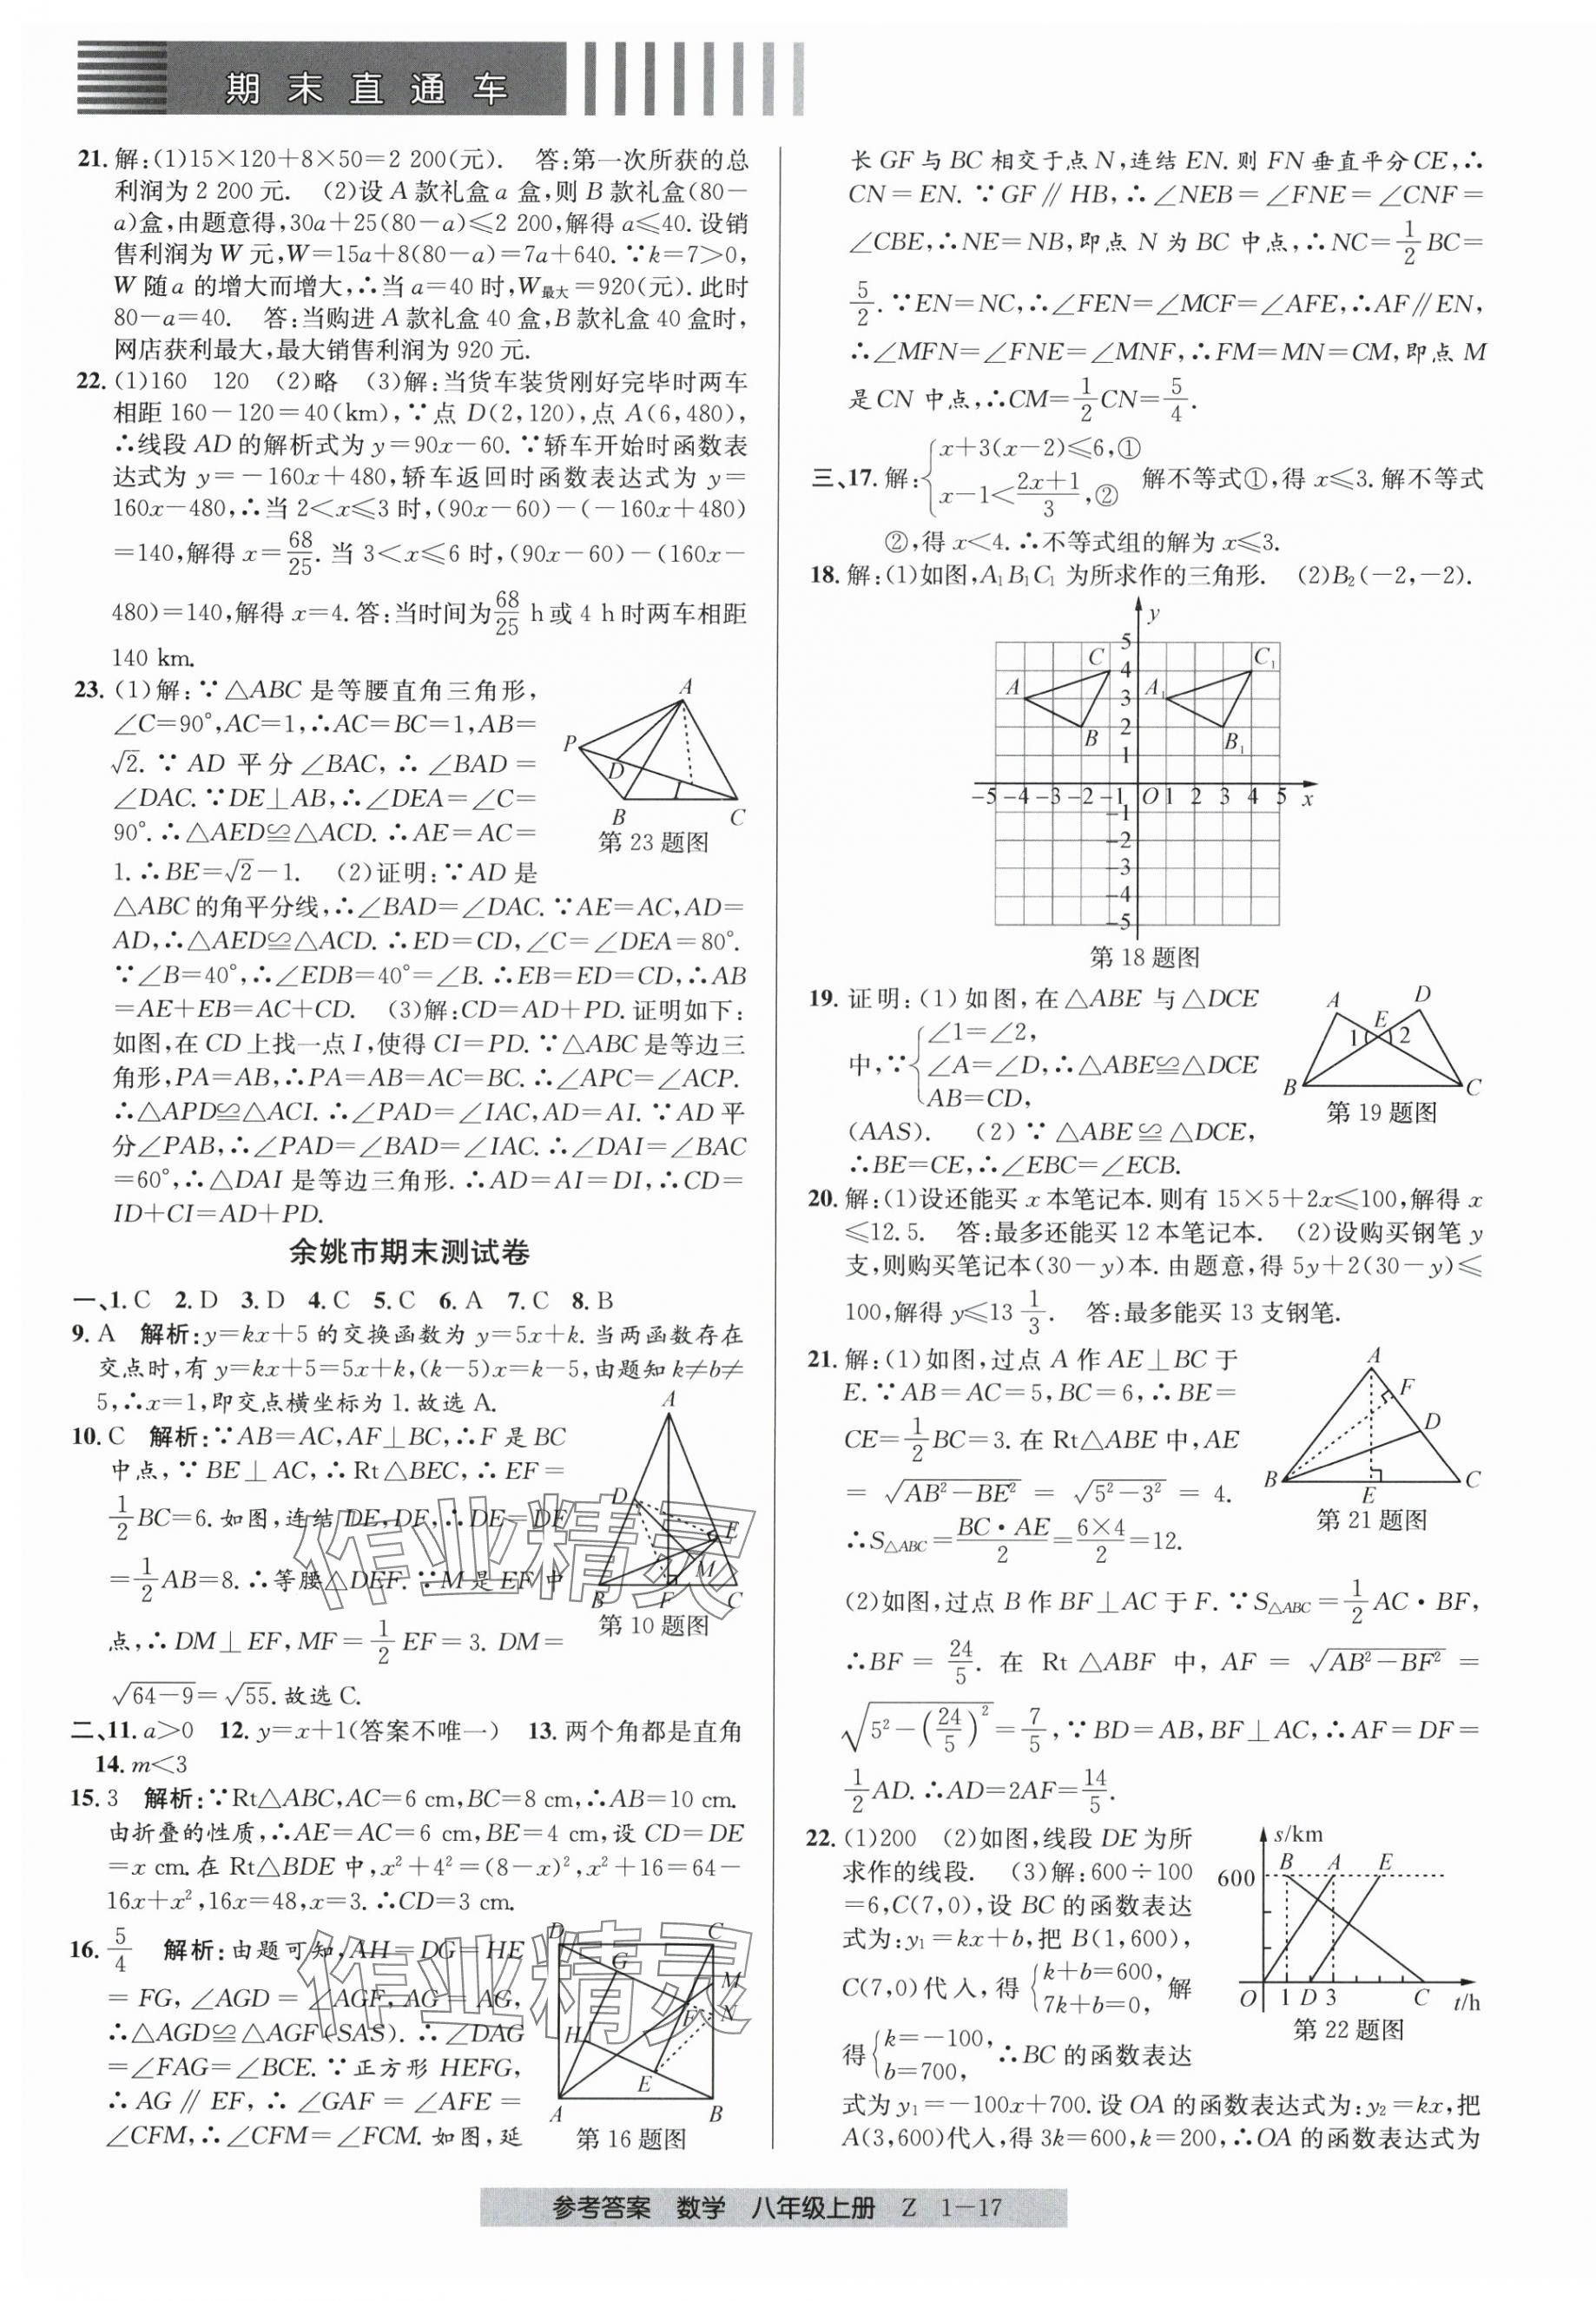 期末直通车
21. 解:(1)15×120+8×50=2 200(元). 答:第一次所获的总
利润为 2 200 元. (2)设 A 款礼盒 a 盒,则 B 款礼盒(80-
a)盒,由题意得,30a+25(80-a)≤2 200,解得 a≤40. 设销
售利润为 W 元,W=15a+8(80-a)=7a+640. ∵k=7>0,
W 随 a 的增大而增大,∴当 a=40 时,W最大=920(元). 此时
80-a=40. 答:当购进 A 款礼盒 40 盒,B 款礼盒 40 盒时,
网店获利最大,最大销售利润为 920 元.
22. (1)160 120 (2)略 (3)解:当货车装货刚好完毕时两车
相距 160-120=40(km),∵点 D(2,120),点 A(6,480),
∴线段 AD 的解析式为 y=90x-60. ∵轿车开始时函数表
达式为 y=-160x+480,轿车返回时函数表达式为 y=
160x-480,∴当 2<x≤3 时,(90x-60)-(-160x+480)
=140,解得 x=68/25. 当 3<x≤6 时,(90x-60)-(160x-
480)=140,解得 x=4. 答:当时间为68/25 h或 4 h时两车相距
140 km.
23. (1)解:∵△ABC 是等腰直角三角形,
∠C=90°,AC=1,∴AC=BC=1,AB=
√2. ∵ AD 平分∠BAC,∴∠BAD=
∠DAC. ∵DE⊥AB,∴∠DEA=∠C=
90°. ∴△AED≌△ACD. ∴AE=AC=
1. ∴BE=√2-1. (2)证明:∵AD 是
A
P
D
B
C
第 23 题图
△ABC 的角平分线,∴∠BAD=∠DAC. ∵AE=AC,AD=
AD,∴△AED≌△ACD. ∴ED=CD,∠C=∠DEA=80°.
∵∠B=40°,∴∠EDB=40°=∠B. ∴EB=ED=CD,∴AB
=AE+EB=AC+CD. (3)解:CD=AD+PD. 证明如下:
如图,在 CD 上找一点 I,使得 CI=PD. ∵△ABC 是等边三
角形,PA=AB,∴PA=AB=AC=BC. ∴∠APC=∠ACP.
∴△APD≌△ACI. ∴∠PAD=∠IAC,AD=AI. ∵AD 平
分∠PAB,∴∠PAD=∠BAD=∠IAC. ∴∠DAI=∠BAC
=60°,∴△DAI 是等边三角形. ∴AD=AI=DI,∴CD=
ID+CI=AD+PD.
余姚市期末测试卷
一、1. C 2. D 3. D 4. C 5. C 6. A 7. C 8. B
9. A 解析:y=kx+5 的交换函数为 y=5x+k. 当两函数存在
交点时,有 y=kx+5=5x+k,(k-5)x=k-5,由题知 k≠b≠
5,∴x=1,即交点横坐标为 1. 故选 A.
10. C 解析:∵AB=AC,AF⊥BC,∴F 是 BC
中点,∵BE⊥AC,∴Rt△BEC,∴EF=
1/2BC=6. 如图,连结 DE,DF,∴DE=DF
=1/2AB=8. ∴等腰△DEF. ∵M 是 EF 中
点,∴DM⊥EF,MF=1/2EF=3. DM=
√64-9=√55. 故选 C.
A
D
E
M
B
F
C
第 10 题图
二、11. a>0 12. y=x+1(答案不唯一) 13. 两个角都是直角
14. m<3
15. 3 解析:∵Rt△ABC,AC=6 cm,BC=8 cm,∴AB=10 cm.
由折叠的性质,∴AE=AC=6 cm,BE=4 cm,设 CD=DE
=x cm. 在 Rt△BDE 中,x²+4²=(8-x)²,x²+16=64-
16x+x²,16x=48,x=3. ∴CD=3 cm.
16. 5/4 解析:由题可知,AH=DG=HE
=FG,∠AGD=∠AGF,AG=AG,
∴△AGD≌△AGF(SAS). ∴∠DAG
=∠FAG=∠BCE. ∵正方形 HEFG,
∴AG∥EF,∴∠GAF=∠AFE=
∠CFM,∴∠CFM=∠FCM. 如图,延
D
C
G
M
F
N
H
E
A
B
第 16 题图
作业精灵
作业精灵
长 GF 与 BC 相交于点 N,连结 EN. 则 FN 垂直平分 CE,∴
CN=EN. ∵GF∥HB,∴∠NEB=∠FNE=∠CNF=
∠CBE,∴NE=NB,即点 N 为 BC 中点,∴NC=1/2BC=
5/2. ∵EN=NC,∴∠FEN=∠MCF=∠AFE,∴AF∥EN,
∴∠MFN=∠FNE=∠MNF,∴FM=MN=CM,即点 M
是 CN 中点,∴CM=1/2CN=5/4.
三、17. 解:{x+3(x-2)≤6,①
x-1<2x+1/3,② 解不等式①,得 x≤3. 解不等式
②,得 x<4. ∴不等式组的解为 x≤3.
18. 解:(1)如图,A₁B₁C₁ 为所求作的三角形. (2)B₂(-2,-2).
y
5
4
3
2
1
-5 -4 -3 -2 -1 O 1 2 3 4 5 x
-1
-2
-3
-4
-5
A
B
C
A₁
B₁
C₁
第 18 题图
19. 证明:(1)如图,在△ABE 与△DCE
中,∵{∠1=∠2,
∠A=∠D,∴△ABE≌△DCE
AB=CD,
(AAS). (2)∵△ABE≌△DCE,
∴BE=CE,∴∠EBC=∠ECB.
A
D
E
1
2
B
C
第 19 题图
20. 解:(1)设还能买 x 本笔记本. 则有 15×5+2x≤100,解得 x
≤12.5. 答:最多还能买 12 本笔记本. (2)设购买钢笔 y
支,则购买笔记本(30-y)本. 由题意,得 5y+2(30-y)≤
100,解得 y≤13 1/3. 答:最多能买 13 支钢笔.
21. 解:(1)如图,过点 A 作 AE⊥BC 于
E. ∵AB=AC=5,BC=6,∴BE=
CE=1/2BC=3. 在 Rt△ABE 中,AE
=√AB²-BE²=√5²-3²=4.
∴S△ABC=BC·AE/2=6×4/2=12.
A
F
D
B
E
C
第 21 题图
(2)如图,过点 B 作 BF⊥AC 于 F. ∵S△ABC=1/2AC·BF,
∴BF=24/5. 在 Rt△ABF 中,AF=√AB²-BF²=
√5²-(24/5)²=7/5,∵BD=AB,BF⊥AC,∴AF=DF=
1/2AD. ∴AD=2AF=14/5.
22. (1)200 (2)如图,线段 DE 为所
求作的线段. (3)解:600÷100
=6,C(7,0),设 BC 的函数表达
式为:y₁=kx+b,把 B(1,600),
C(7,0)代入,得{k+b=600,
7k+b=0, 解
得{k=-100,
b=700, ∴BC 的函数表达
s/km
600
B
A
E
O
1
D
3
C
t/h
第 22 题图
式为 y₁=-100x+700. 设 OA 的函数表达式为:y₂=kx,把
A(3,600)代入,得 3k=600,k=200,∴OA 的函数表达式为
参考答案 数学 八年级上册 Z 1-17